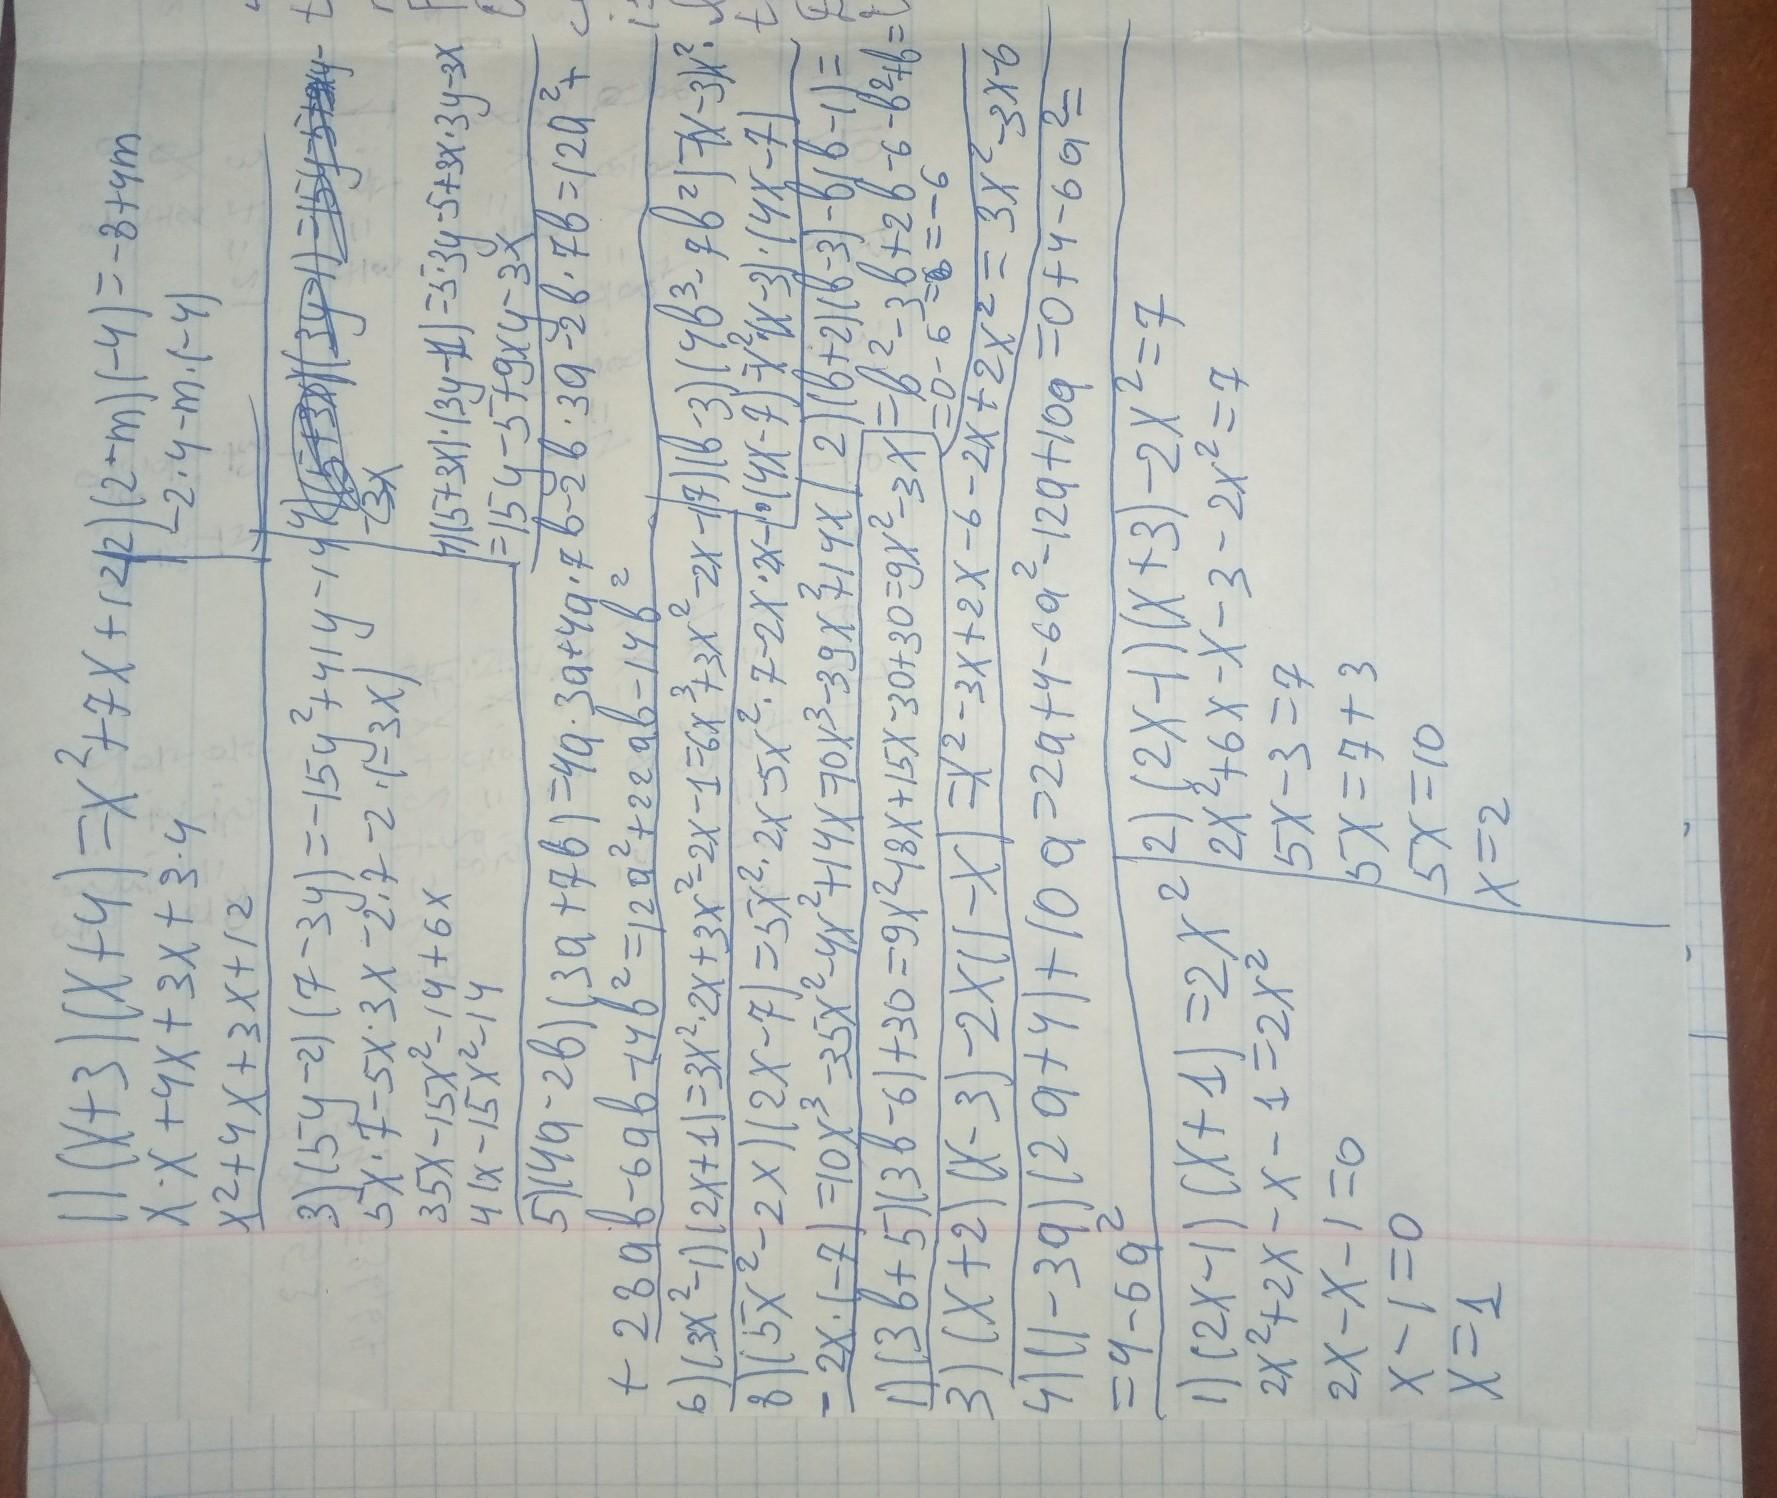 1)(x+3)(x+4)=x²+7x+12
x·x+4x+3x+3·4
x2+4x+3x+12
2)(2-m)(-4)=-8+4m
-2·4-m·(-4)
3)(5y-2)(7-3y)=-15y²+41y-14
5x·7-5x·3x-2·7-2·(-3x)
35x-15x²-14+6x
41x-15x²-14
4)(5+3x)·(3y-1)=5·3y-5+3x·3y-3x
=15y-5+9xy-3x
5)(4a-2b)(3a+7b)=4a·3a+4a·7b-2b·3a-2b·7b=12a²+
+28ab-6ab-14b²=12a²+22ab-14b²
6)(3x²-1)(2x+1)=3x²·2x+3x²-2x-1=6x³+3x²-2x-1
7)(b-3)(4b³-7b²)
8)(5x²-2x)(2x-7)=5x²·2x-5x²·7-2x·2x-
-2x·(-7)=10x³-35x²-4x²+14x=10x³-39x²+14x
1)(3b+5)(3b-6)+30=9x²-18x+15x-30+30=9x²-3x
2)(b+2)(b-3)-b(b-1)=
=b²-3b+2b-6-b²+b=
=0-6=-6
3)(x+2)(x-3)-2x(1-x)=x²-3x+2x-6-2x+2x²=3x²-3x-6
4)(1-3a)(2a+4)+10a=2a+4-6a²-12a+10a=0+4-6a²=
=4-6a²
1)(2x-1)(x+1)=2x²
2x²+2x-x-1=2x²
2x-x-1=0
x-1=0
x=1
2)(2x-1)(x+3)-2x²=7
2x²+6x-x-3-2x²=7
5x-3=7
5x=7+3
5x=10
x=2